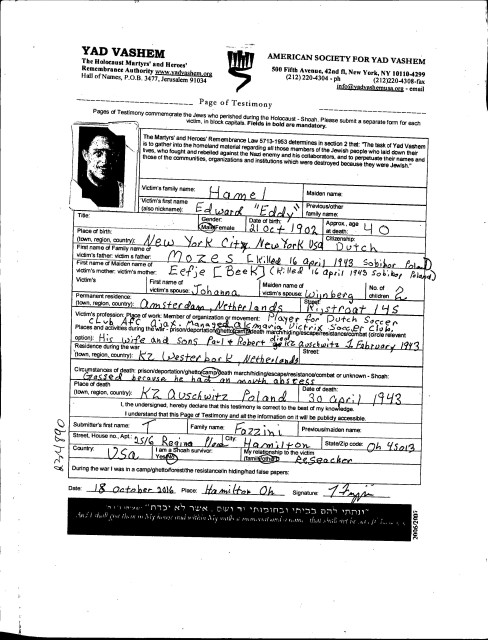 YAD VASHEM
The Holocaust Martyrs' and Heroes'
Remembrance Authority www.yadvashem.org
Hall of Names, P.O.B. 3477, Jerusalem 91034
AMERICAN SOCIETY FOR YAD VASHEM
500 Fifth Avenue, 42nd fl, New York, NY 10110-4299
(212) 220-4304 - ph (212)220-4308-fax
info@yadvashemusa.org - email
Page of Testimony
Pages of Testimony commemorate the Jews who perished during the Holocaust - Shoah. Please submit a separate form for each
victim, in block capitals. Fields in bold are mandatory.
The Martyrs' and Heroes' Remembrance Law 5713-1953 determines in section 2 that: "The task of Yad Vashem
is to gather into the homeland material regarding all those members of the Jewish people who laid down their
lives, who fought and rebelled against the Nazi enemy and his collaborators, and to perpetuate their names and
those of the communities, organizations and institutions which were destroyed because they were Jewish."
Victim's family name: Hamel Maiden name:
Victim's first name
(also nickname): Edward "Eddy" Previous/other
family name:
Title: Gender:
Male/Female Date of birth:
21 Oct 1902 Approx. age
at death: 40
Place of birth:
(town, region, country): New York City, New York USA Citizenship:
Dutch
First name of Family name of
victim's father: victim's father: Mozes [Killed 16 april 1943 Sobibor Poland]
First name of Maiden name of
victim's mother: victim's mother: Eefje [Beek] (Killed 16 april 1943 Sobibor Poland)
Victim's First name of
victim's spouse: Johanna Maiden name of
victim's spouse: Wijnberg No. of
children: 2
Permanent residence:
(town, region, country): Amsterdam, Netherlands Street:
145
Victim's profession: Place of work: Member of organization or movement: Player for Dutch Soccer
Club AFC Ajax. Managed alkmaria Victrix Soccer Club.
Places and activities during the war - prison/deportation/ghetto/camp/death march/hiding/escape/resistance/combat (circle relevant
option): His wife and sons Paul & Robert died KZ auschwitz 1 February 1943
Residence during the war
(town, region, country): KZ Westerbork, Netherlands Street:
Circumstances of death: prison/deportation/ghetto/camp/death marching/hiding/escape/resistance/combat or unknown - Shoah:
Gassed because he had an mouth abscess
Place of death
(town, region, country): KZ Auschwitz Poland Date of death:
30 april 1943
I, the undersigned, hereby declare that this testimony is correct to the best of my knowledge.
I understand that this Page of Testimony and all the information on it will be publicly accessible.
Submitter's first name: T Family name: Fazzini Previous/maiden name:
Street, House no., Apt.: 2516 Regina City: Hamilton State/Zip code: Oh 45013
Country: USA I am a Shoah survivor:
Yes/No My relationship to the victim
(family/other): Reseacher
During the war I was in a camp/ghetto/forest/the resistance/in hiding/had false papers:
Date: 18 October 2016 Place: Hamilton Oh Signature: T Fazzini